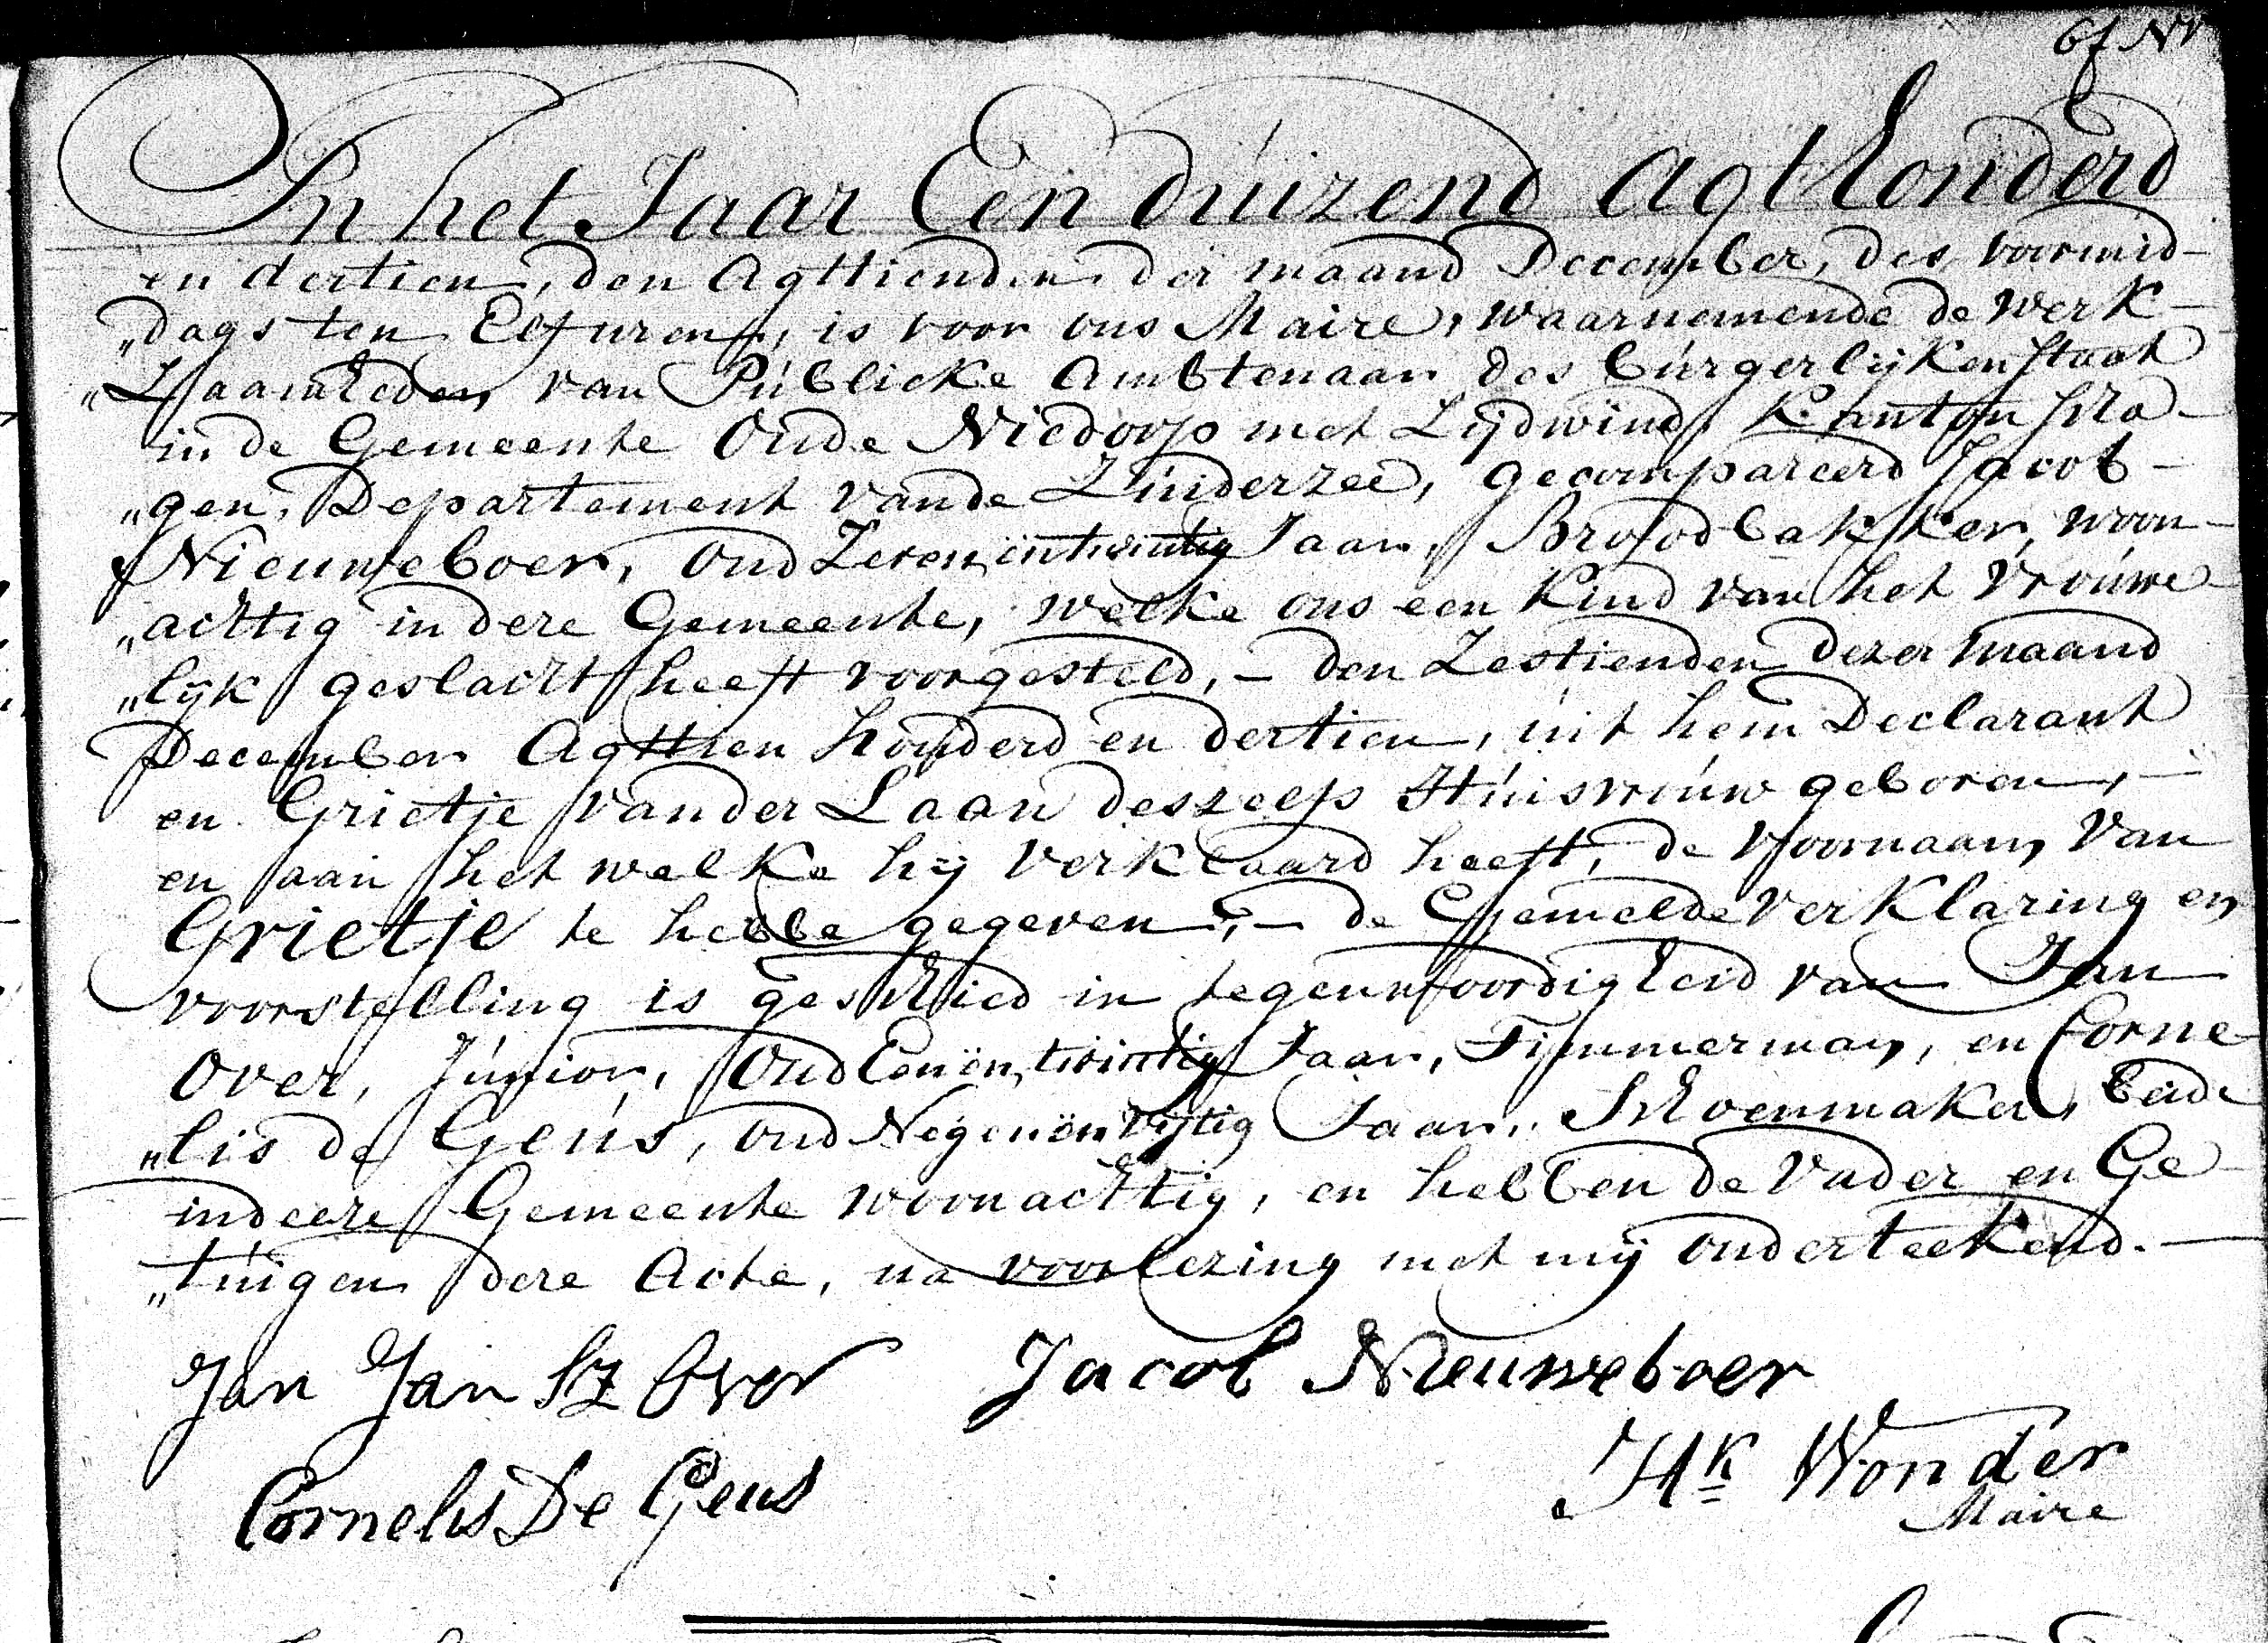 In het Jaar Een duizend agthonderd
en dertien, den Agttienden der maand December, des voormid-
„dags ten Elf uren, is voor ons Maire, waarnemende de werk-
„Zaamheden van Publieke Ambtenaar des burgerlijken Staat
in de Gemeente Oude Niedorp met Zijdwind, Kanton Scha-
„gen, Departement van de Zuiderzee, gecompareerd Jacob
Nieuweboer, oud Zeven entwintig Jaar, Broodbakker, woon-
„achtig in deze Gemeente, welke ons een Kind van het vrouwe
„lijk geslacht heeft voorgesteld, – den Zestienden dezer maand
December Agttien honderd en dertien, uit hem Declarant
en Grietje van der Laan deszelfs Huisvrouw geboren, –
en aan het welke hij verklaard heeft, de voornaam van
Grietje te hebbe gegeven; – de Gemelde verklaring en
voorstelling is geschied in tegenwoordigheid van Jan
Over, Junior, Oud Eenëntwintig Jaar, Timmerman, en Corne
„lis de Geus, oud Negenënvijftig Jaar, Schoenmaker, beide
in deeze Gemeente woonachtig, en hebben de Vader en Ge
„tuigen deze Acte, na voorlezing met mij onderteekend. –
Jan Jan SZ Over Jacob Nieuweboer
Cornelis De Geus
Hk Wonder
Maire